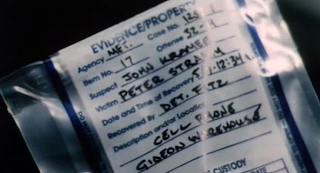 EVIDENCE/PROPERTY
Agency MET. Case No.
Item No. 17 Offense
Suspect JOHN KRAMER
Victim PETER STRAHM
Date and Time of Recovery
Recovered By DET. FITZ
Description and/or Location
CELL PHONE
GIDEON WAREHOUSE
CUSTODY